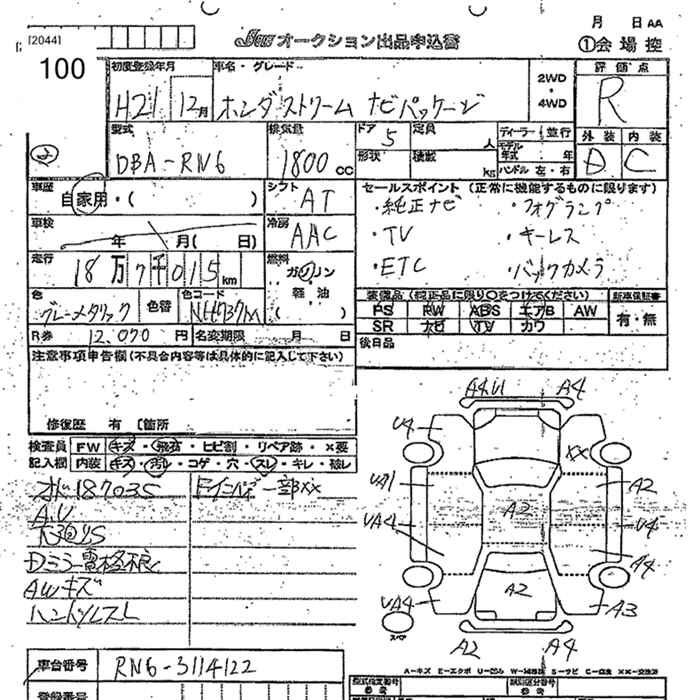 [20441
月 日 AA
オークション出品申込書
①会場控
100
初度登録年月
車名・グレード
2WD
・
4WD
評価点
H21 12月
ホンダストリーム ナビパッケージ
R
型式
排気量
ドア
5
定員
人
ディーラー・並行
モデル年式 年
外装
内装
DBA-RN6
1800cc
形状
積載
kg
ハンドル 左・右
D
C
車歴
自家用・( )
シフト
AT
セールスポイント (正常に機能するものに限ります)
・純正ナビ
・フォグランプ
車検
年 月( 日)
冷房
AAC
・TV
・キーレス
走行
18万7千015km
燃料
ガソリン
軽油
( )
・ETC
・バックカメラ
色
グレーメタリック
色替
色コード
NH737M
装備品(純正品に限り○をつけてください)
新車保証書
PS PW ABS エアB AW
有・無
SR ナビ TV カワ
R券 12,070円
名変期限 月 日
後日品
注意事項申告欄(不具合内容等は具体的に記入して下さい)
修復歴 有 [箇所
検査員
記入欄
FW キズ・飛石・ヒビ割・リペア跡・×要
内装 キズ・汚レ・コゲ・穴・スレ・キレ・破レ
187035
Dミラー電格不良
AWキズ
ハンドルスレ
A4U
A4
U4
XX
UA1
A2
A2
UA4
U4
A4
A2
UA4
A3
スペア
A2
A4
A-キズ E-エクボ U-凹ミ W-補修跡 S-サビ C-腐食 XX-交換済
車台番号
RN6-3114122
型式指定番号
類別区分番号
参考
参考
登録番号